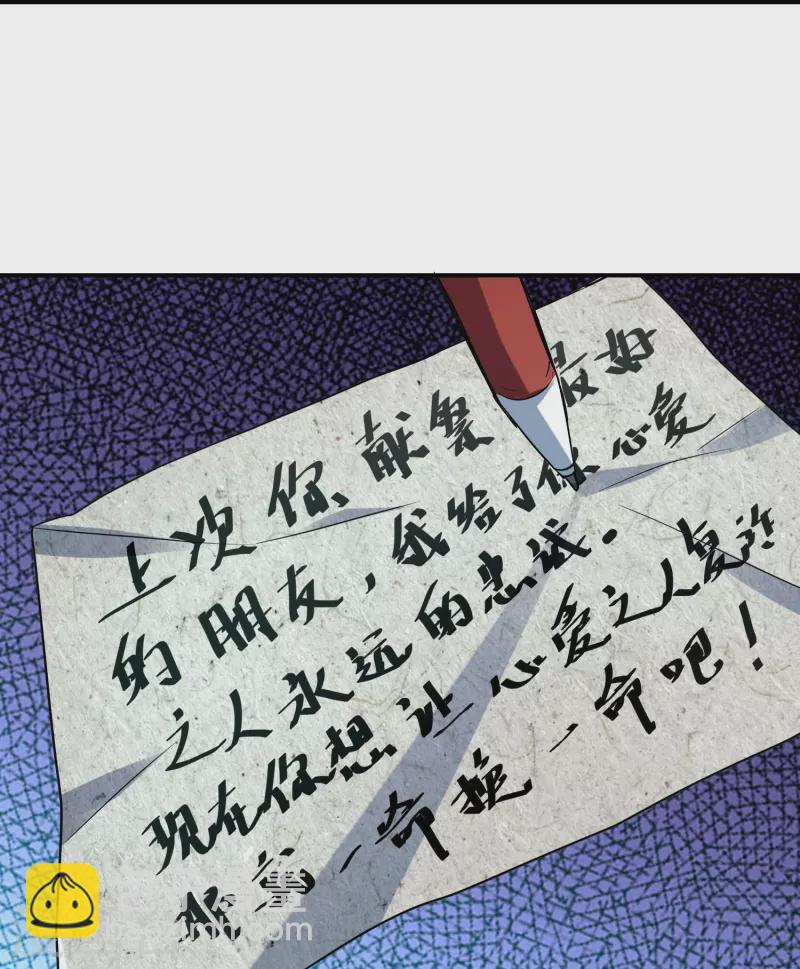 上次你献祭最好
的朋友，我给了你心爱
之人永远的忠诚。
现在你想让心爱之人复活
那就一命换一命吧！
baozimh.com